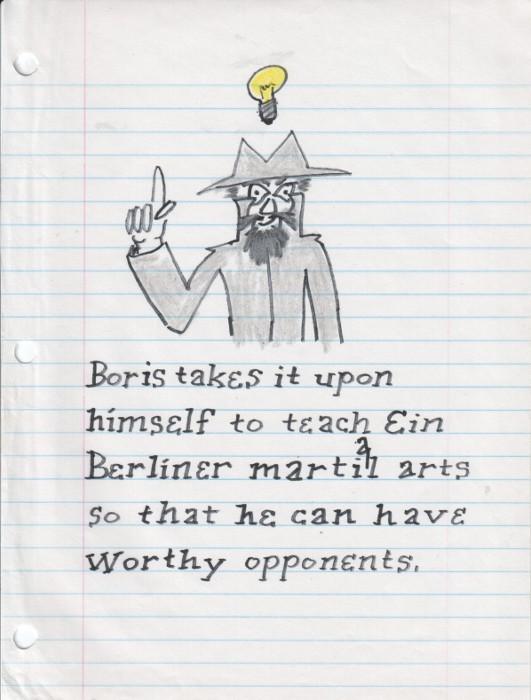 Boris takes it upon
himself to teach Ein
Berliner martial arts
so that he can have
worthy opponents.